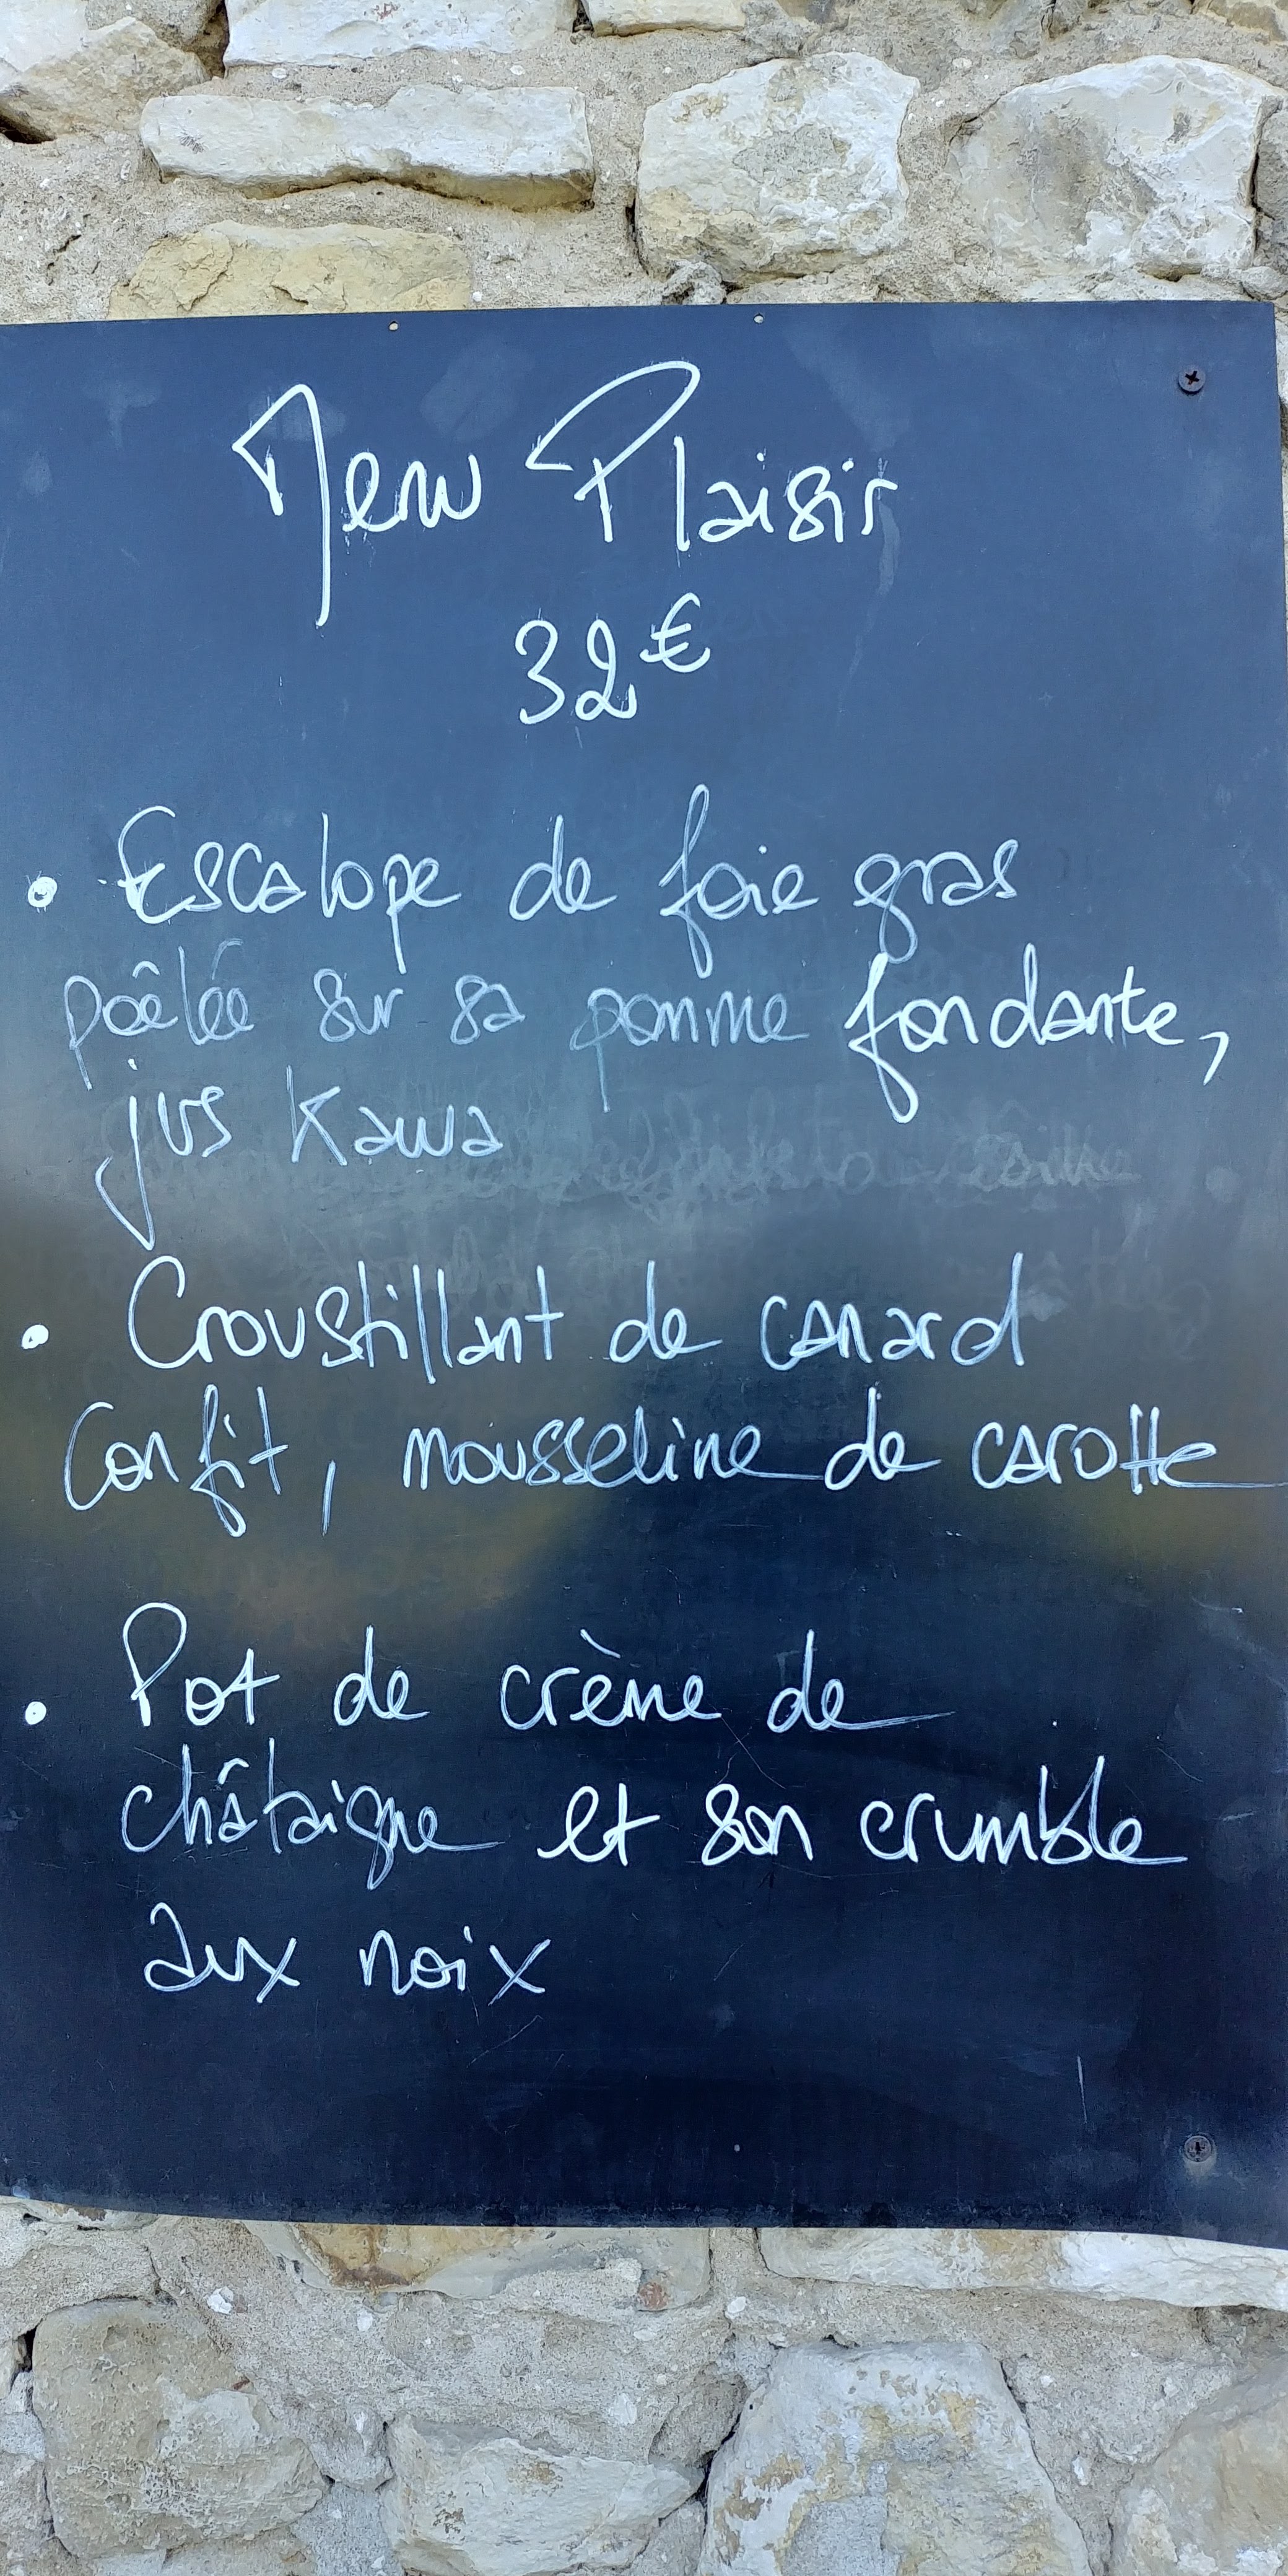 Menu Plaisir
32€
• Escalope de foie gras
poêlée sur sa pomme fondante,
jus Kawa
• Croustillant de canard
Confit, mousseline de carotte
• Pot de crème de
châtaigne et son crumble
aux noix